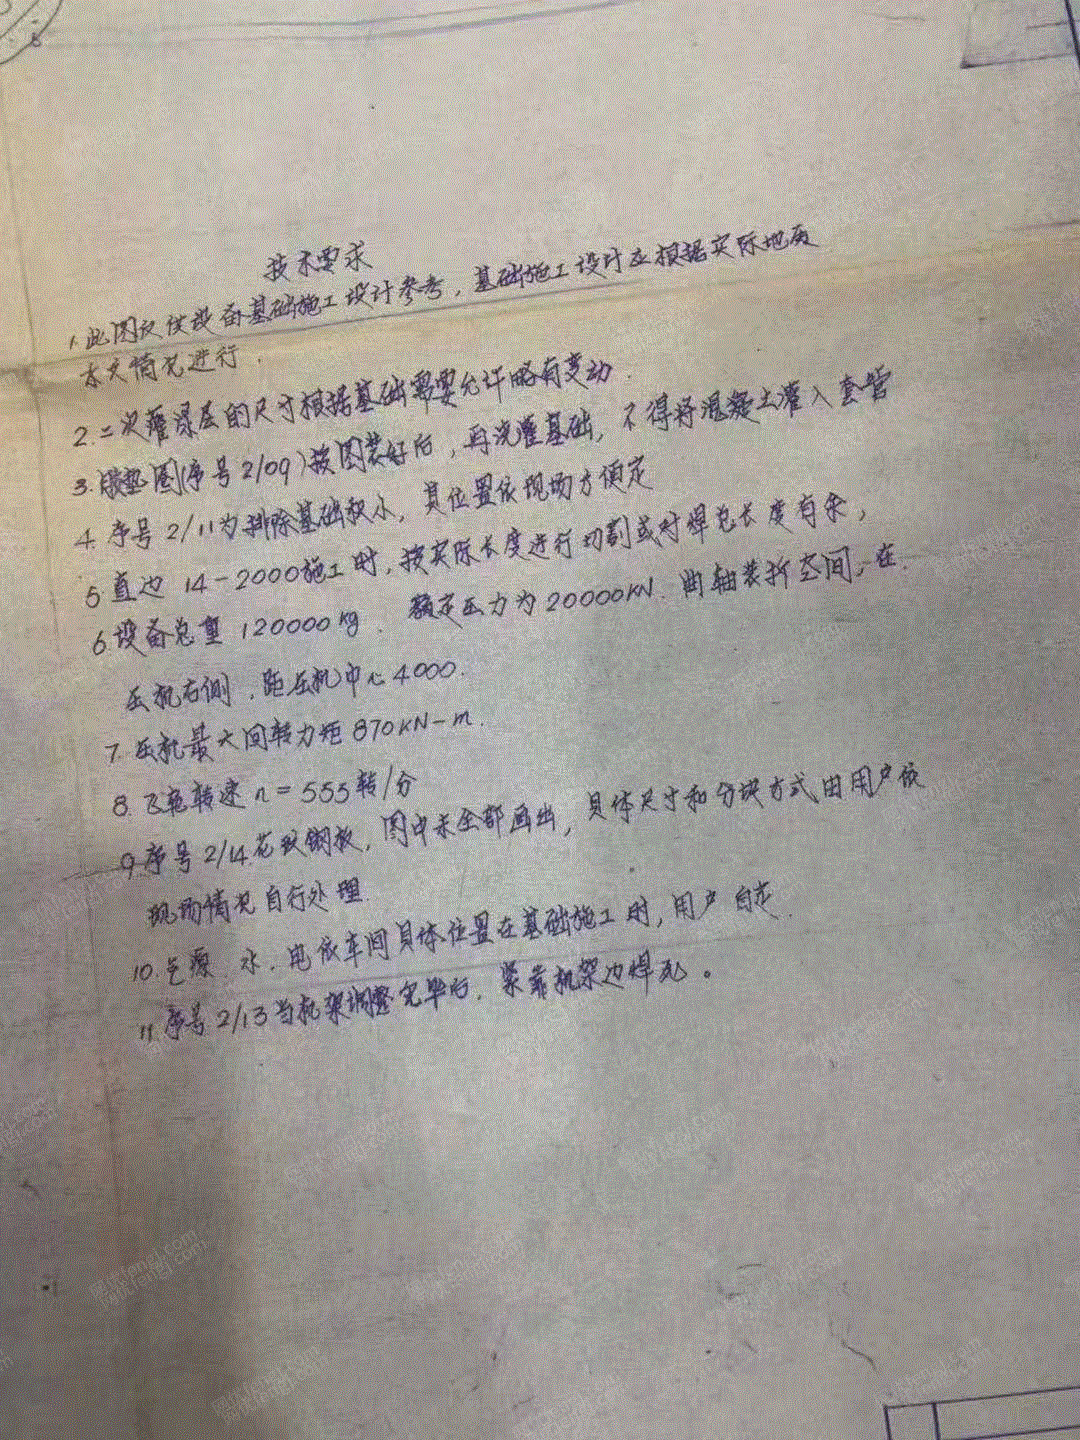 技术要求
1. 此图仅供设备基础施工设计参考，基础施工设计应根据实际地质
水文情况进行.
2. 二次灌浆层的尺寸根据基础需要允许略有变动.
3. 橡垫圈(序号2/09)按图装好后，再浇灌基础，不得将混凝土灌入套管
4. 序号2/11为排除基础积水，其位置依现场方便定
5 直边 14-2000施工时，按实际长度进行切割或对焊总长度有余，
6. 设备总重 120000kg. 额定压力为20000KN. 曲轴装拆空间，在.
压机右侧，距压机中心4000.
7. 压机最大回转力矩870KN-m.
8. 飞轮转速 n=555转/分
9 序号2/14.花纹钢板，图中未全部画出，具体尺寸和分块方式由用户依
现场情况自行处理.
10. 气源 水. 电依车间具体位置在基础施工时，用户自定.
11. 序号2/13当机架调整完毕后. 紧靠机架边焊死。